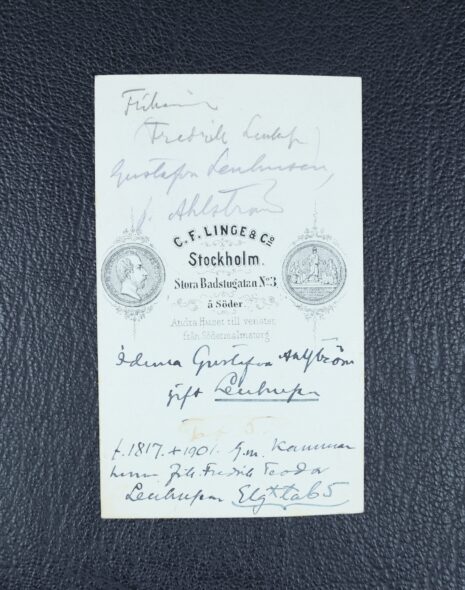 Friherrin
(Fredrik Leuhus)
Gustafva Leuhusen,
f. Ahlström
C. F. LINGE & Co
Stockholm.
Stora Badstugatan No 3
å Söder.
Andra Huset till venster
från Södermalmstorg
Edema Gustafva Ahlström
gift Leuhusen
Tab 5.
f. 1817. + 1901. G.m. Kammar
herren frih. Fredrik Teodor
Leuhusen Elg** tab 5